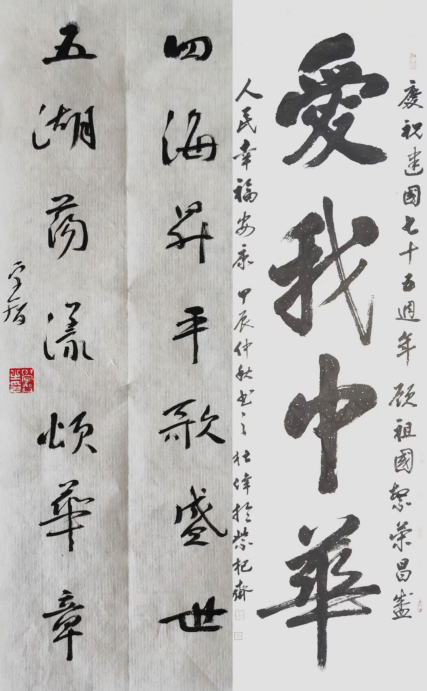 慶祝建國七十五週年 願祖國繁榮昌盛
愛我中華
人民幸福安康 甲辰仲秋書之 杜偉於紫杞齋
四海昇平歌盛世
五湖蕩漾頌華章